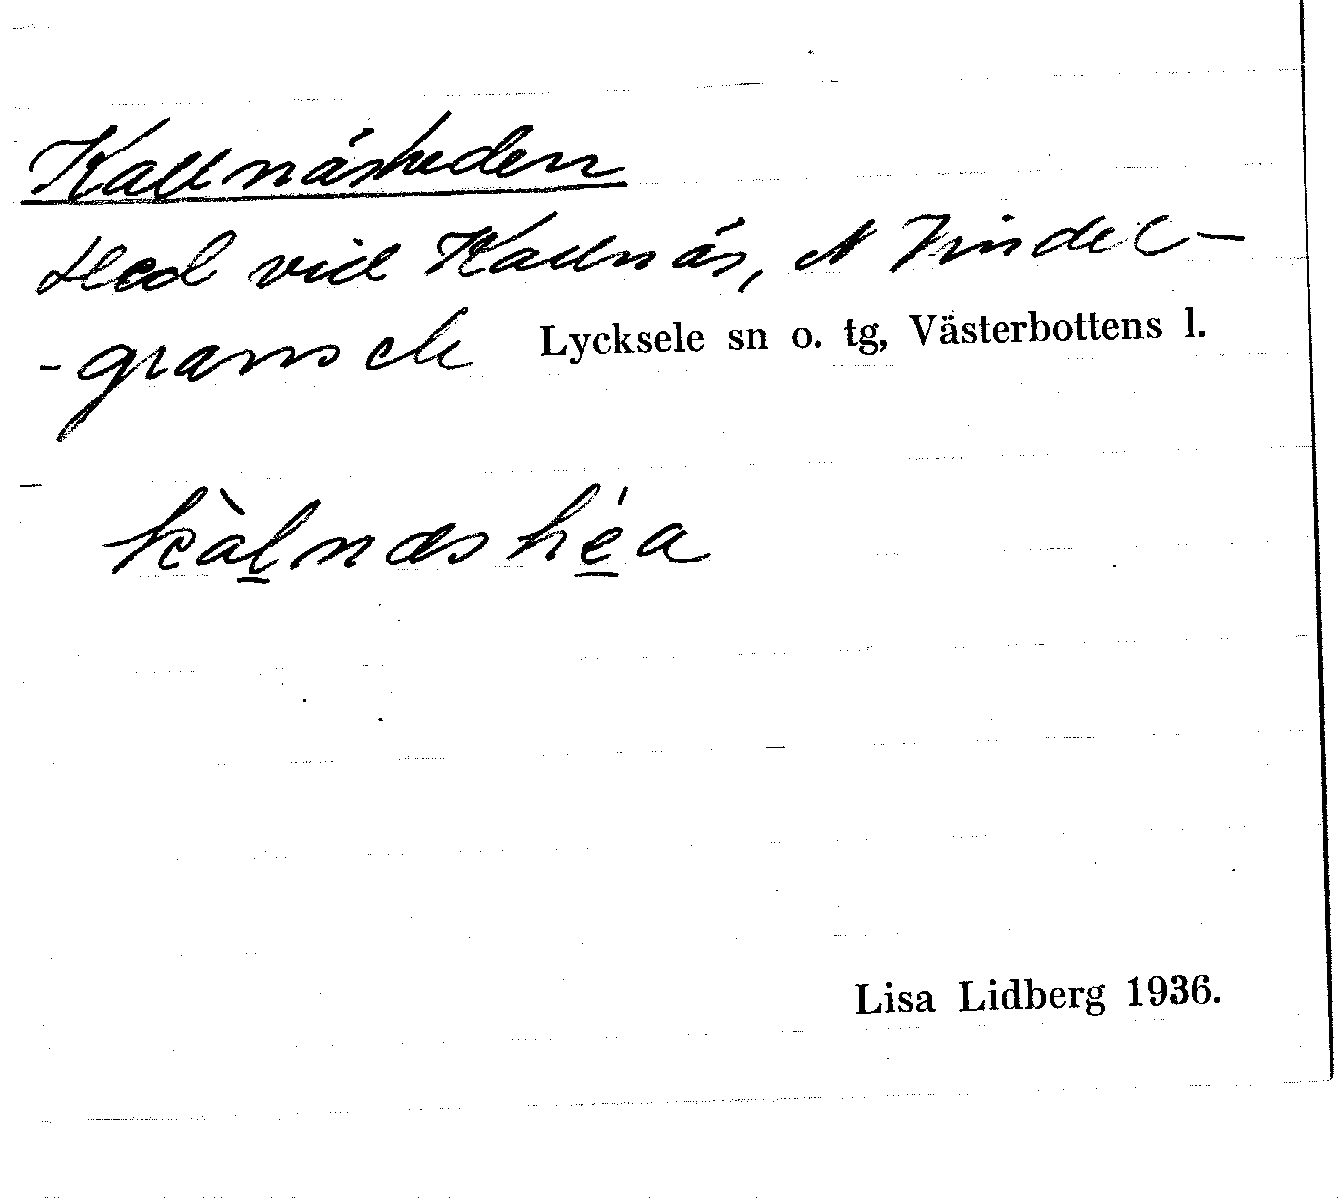 Kallnäsheden
Hed vid Kallnäs, N Vindel-
-gransele Lycksele sn o. tg, Västerbottens l.
kàl̲næshé̲a
Lisa Lidberg 1936.